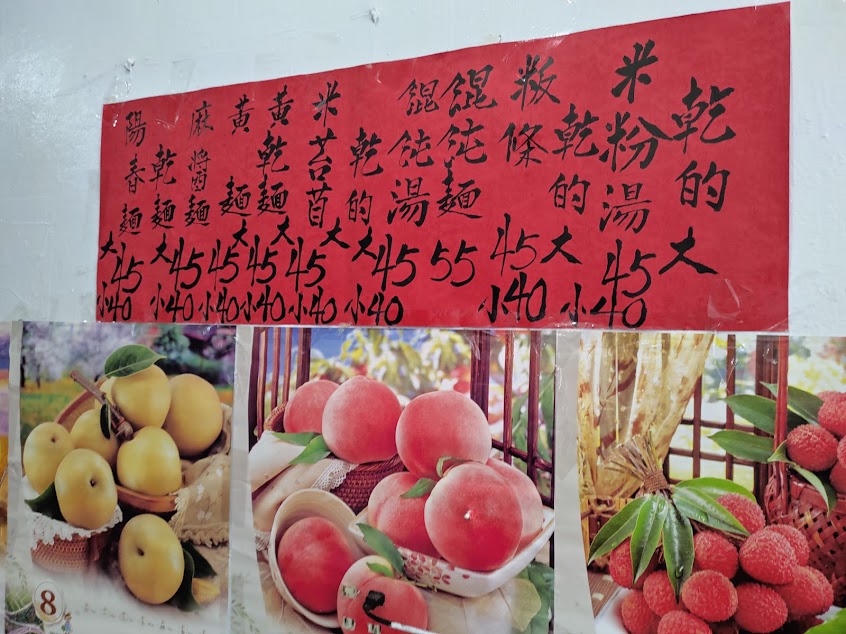 乾的
米粉湯 大45 小40
乾的
粄條 大45 小40
餛飩麵 55
餛飩湯 大45 小40
乾的
米苔苜 大45 小40
黃乾麵 大45 小40
黃麵 大45 小40
麻醬麵 大45 小40
乾麵
陽春麵 大45 小40
8